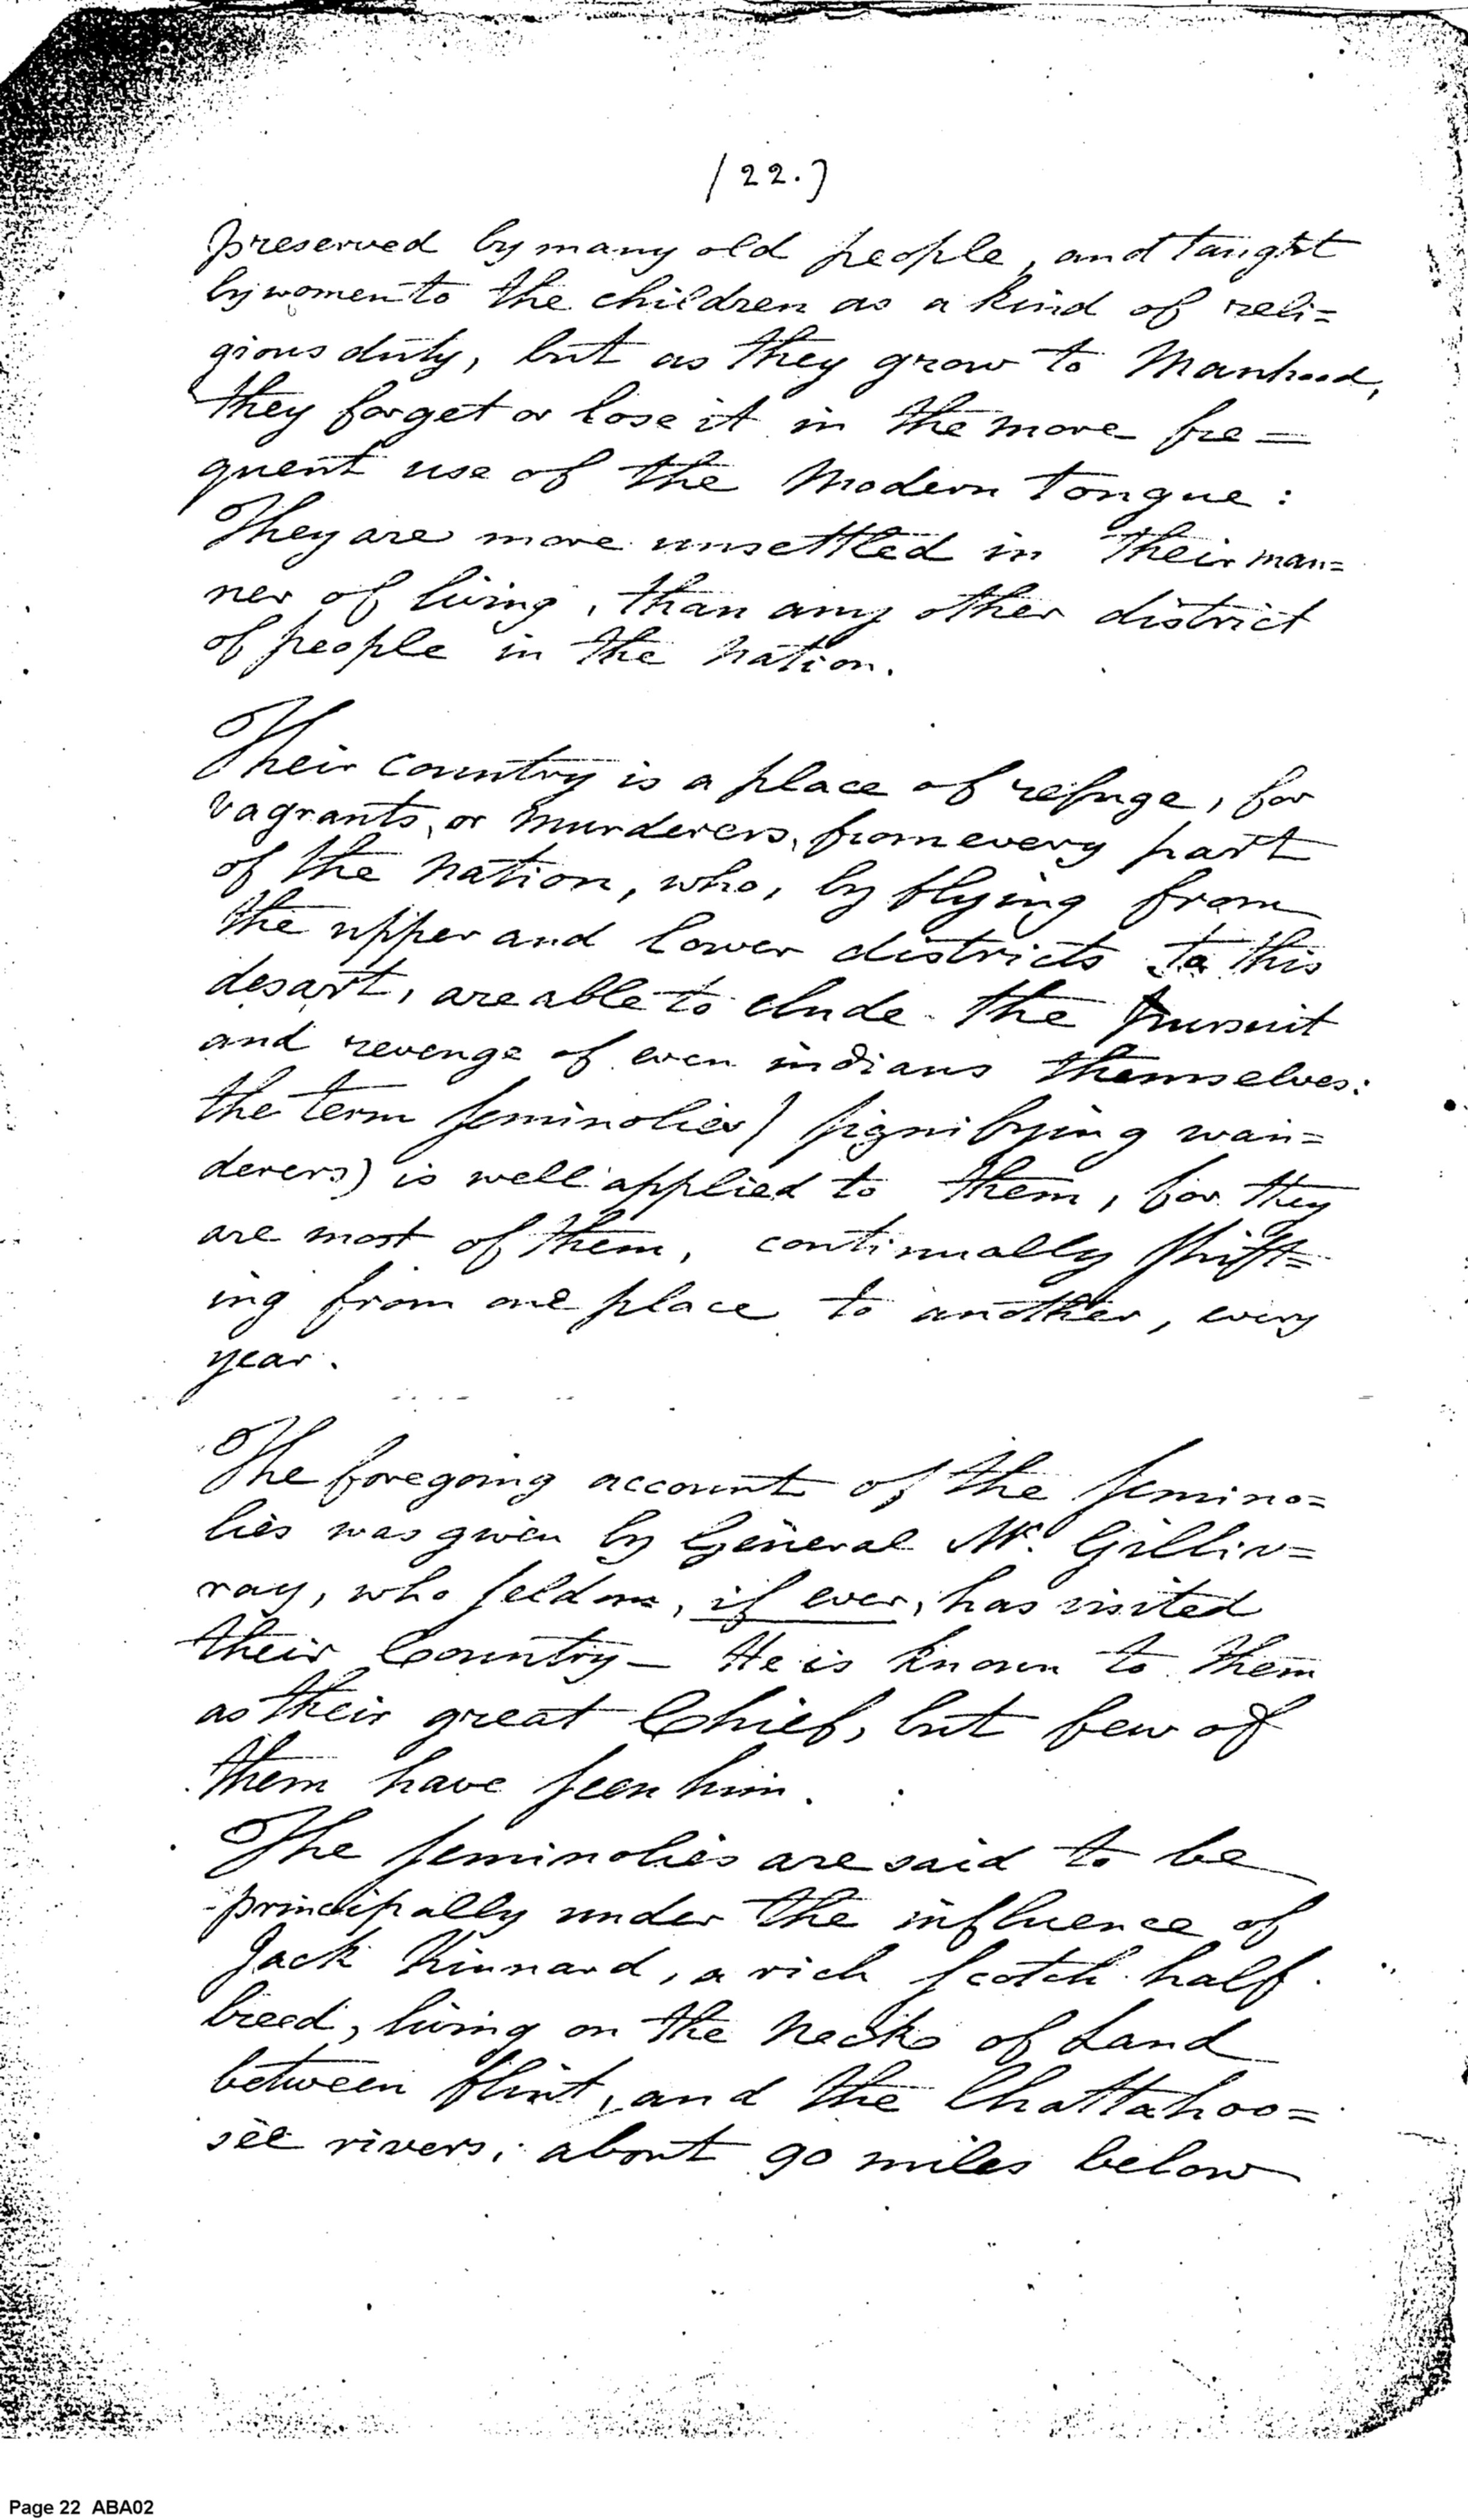 (22.)
preserved by many old people, and taught
by women to the children as a kind of reli=
gious duty, but as they grow to Manhood,
they forget or lose it in the more fre=
quent use of the Modern Tongue:
They are more unsettled in their man=
ner of living, than any other district
of people in the Nation.
Their Country is a place of refuge, for
vagrants, or murderers, from every part
of the Nation, who, by flying from
the upper and lower districts to this
desart, are able to elude the pursuit
and revenge of even indians themselves:
the term seminolies (signifying wan=
derers) is well applied to them, for they
are most of them, continually shift=
ing from one place to another, every
year.
The foregoing account of the semino=
lies was given by General Mc. Gilliv=
ray, who seldom, if ever, has visited
their Country— He is known to them
as their great Chief, but few of
them have seen him.
The seminolies are said to be
principally under the influence of
Jack Kinnard, a rich scotch half
breed, living on the Necks of Land
between flint, and the Chattahoo=
see rivers; about 90 miles below
Page 22 ABA02